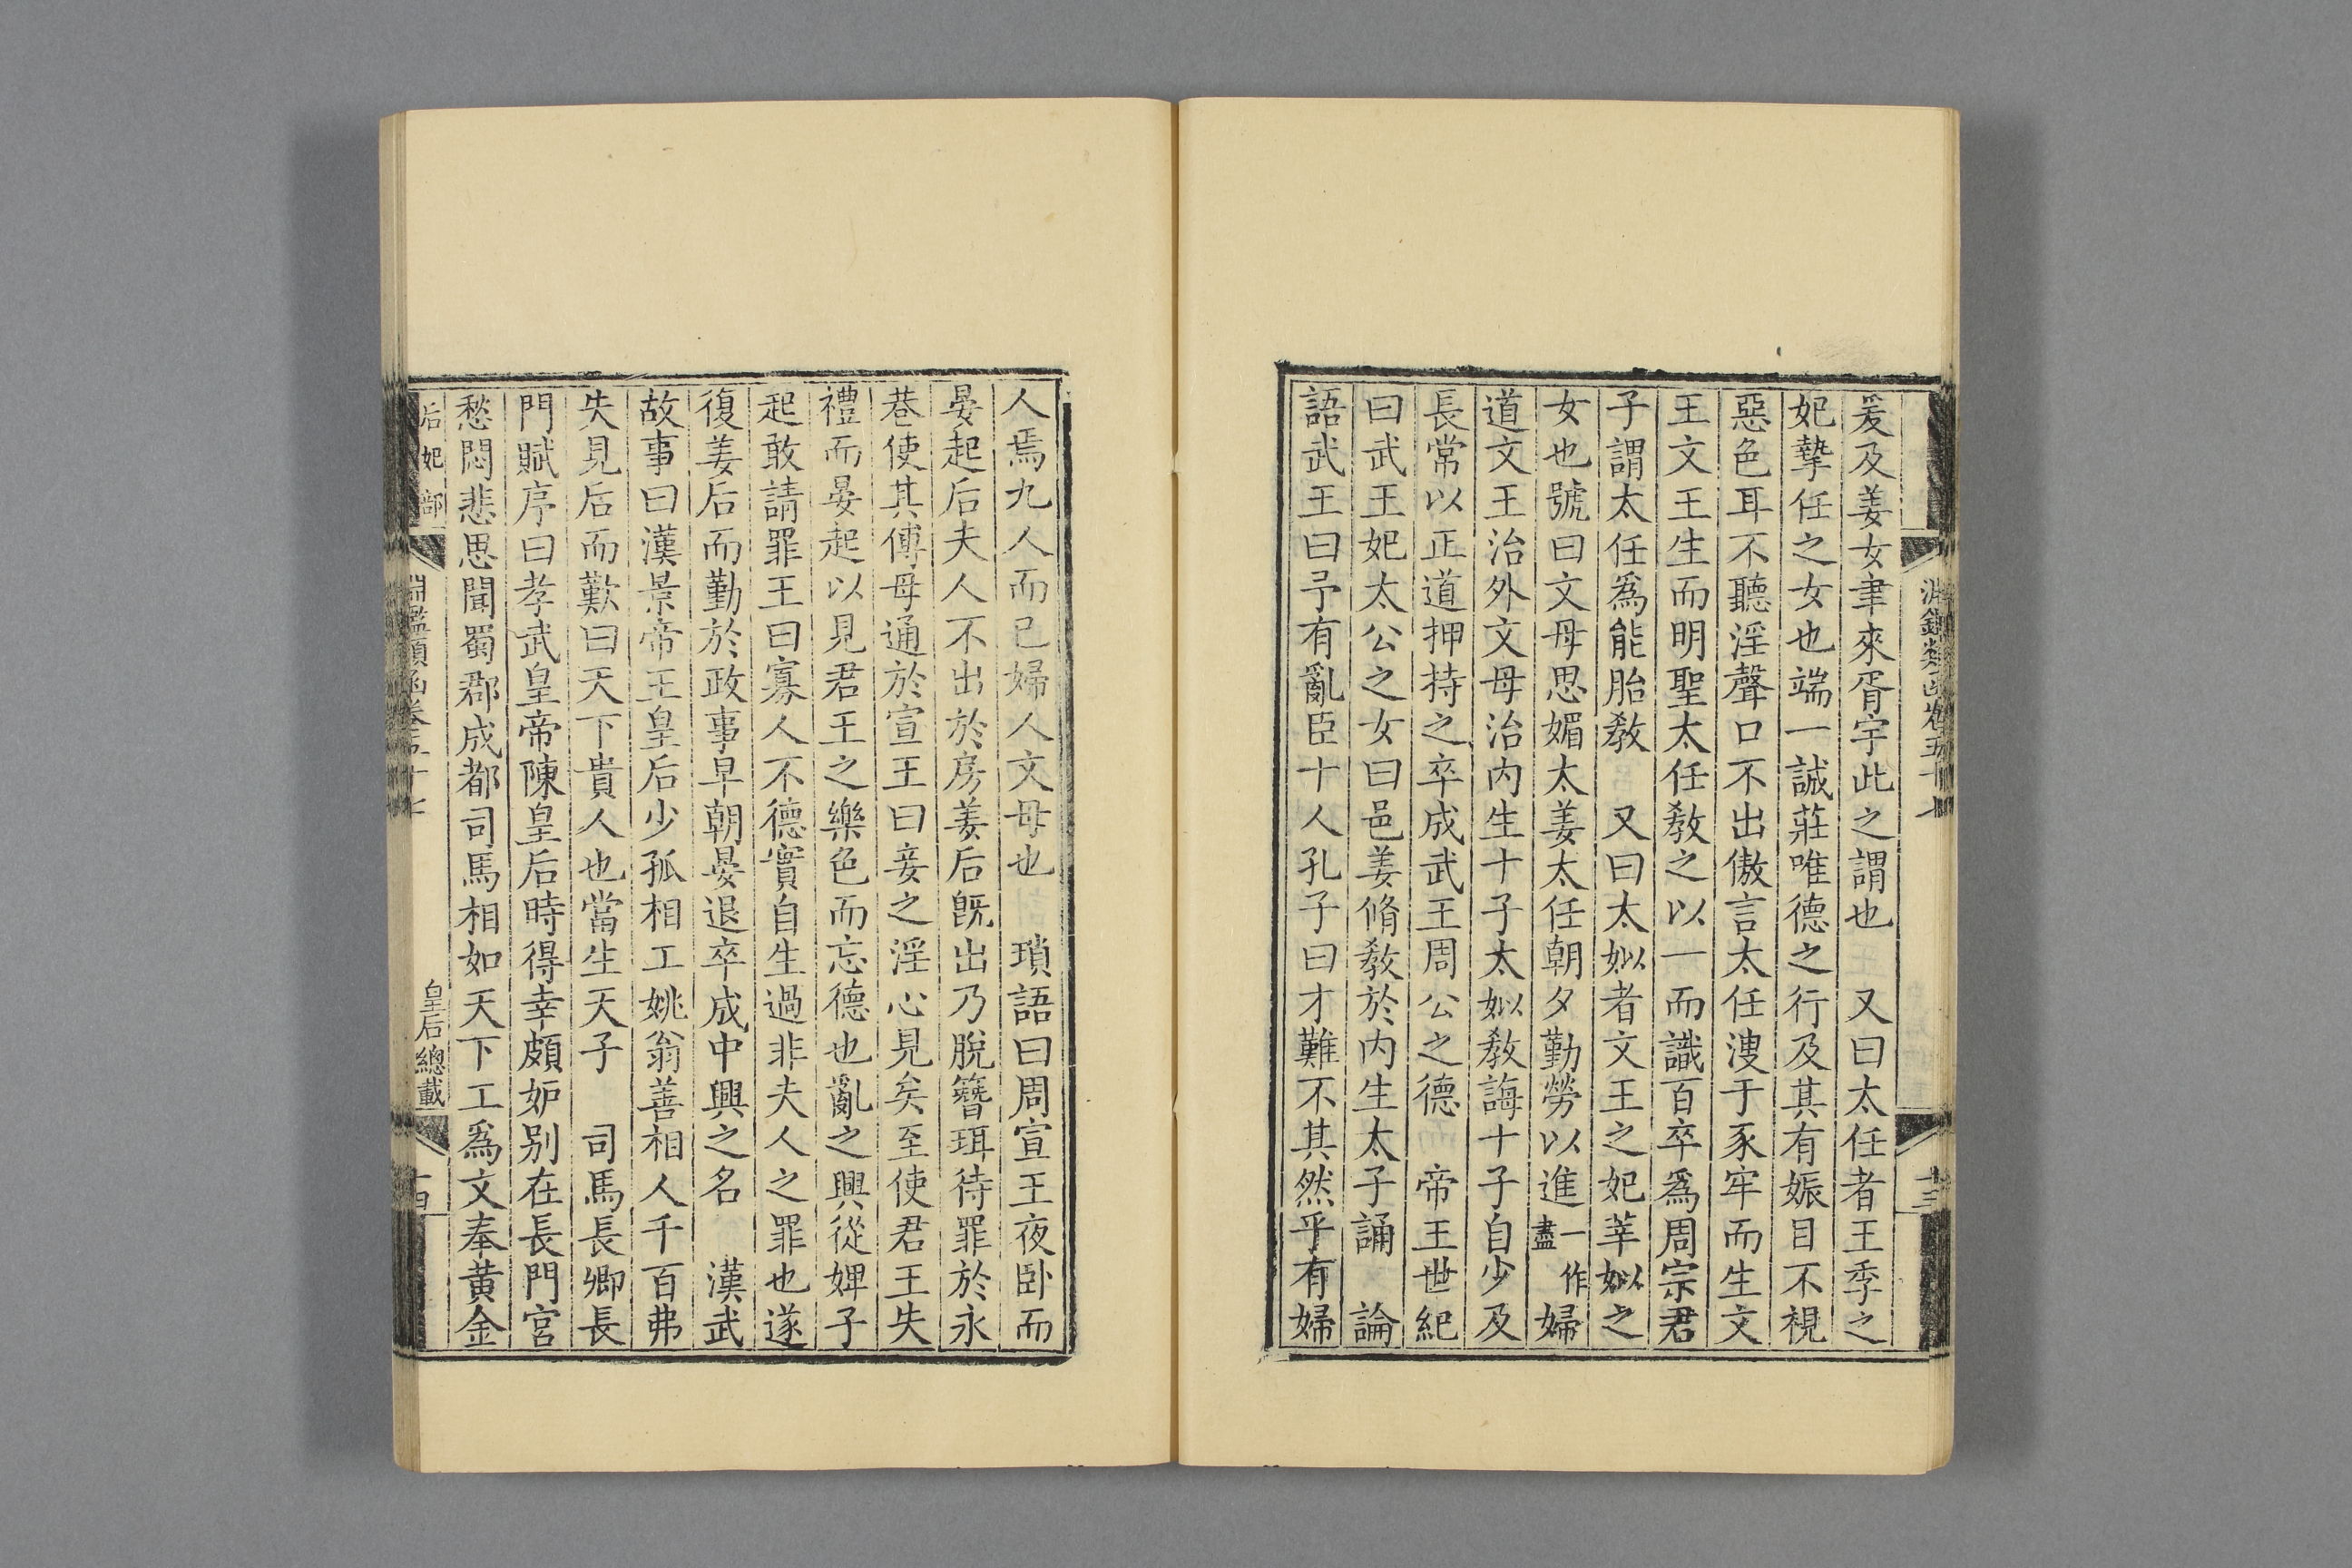 淵鑑類函卷五十七
十三
爰及姜女聿來胥宇此之謂也　又曰太任者王季之
妃摯任之女也端一誠莊唯德之行及其有娠目不視
惡色耳不聽淫聲口不出傲言太任溲于豕牢而生文
王文王生而明聖太任敎之以一而識百卒爲周宗君
子謂太任爲能胎敎　又曰太姒者文王之妃莘姒之
女也號曰文母思媚太姜太任朝夕勤勞以進一作盡婦
道文王治外文母治內生十子太姒敎誨十子自少及
長常以正道押持之卒成武王周公之德　帝王世紀
曰武王妃太公之女曰邑姜脩敎於内生太子誦　論
語武王曰予有亂臣十人孔子曰才難不其然乎有婦
人焉九人而已婦人文母也　瑣語曰周宣王夜卧而
晏起后夫人不出於房姜后旣出乃脫簪珥待罪於永
巷使其傅母通於宣王曰妾之淫心見矣至使君王失
禮而晏起以見君王之樂色而忘德也亂之興從婢子
起敢請罪王曰寡人不德實自生過非夫人之罪也遂
復姜后而勤於政事早朝晏退卒成中興之名　漢武
故事曰漢景帝王皇后少孤相工姚翁善相人千百弗
失見后而歎曰天下貴人也當生天子　司馬長卿長
門賦序曰孝武皇帝陳皇后時得幸頗妒别在長門宮
愁悶悲思聞蜀郡成都司馬相如天下工爲文奉黄金
后妃部
淵鑑類函卷五十七
皇后總載
十四